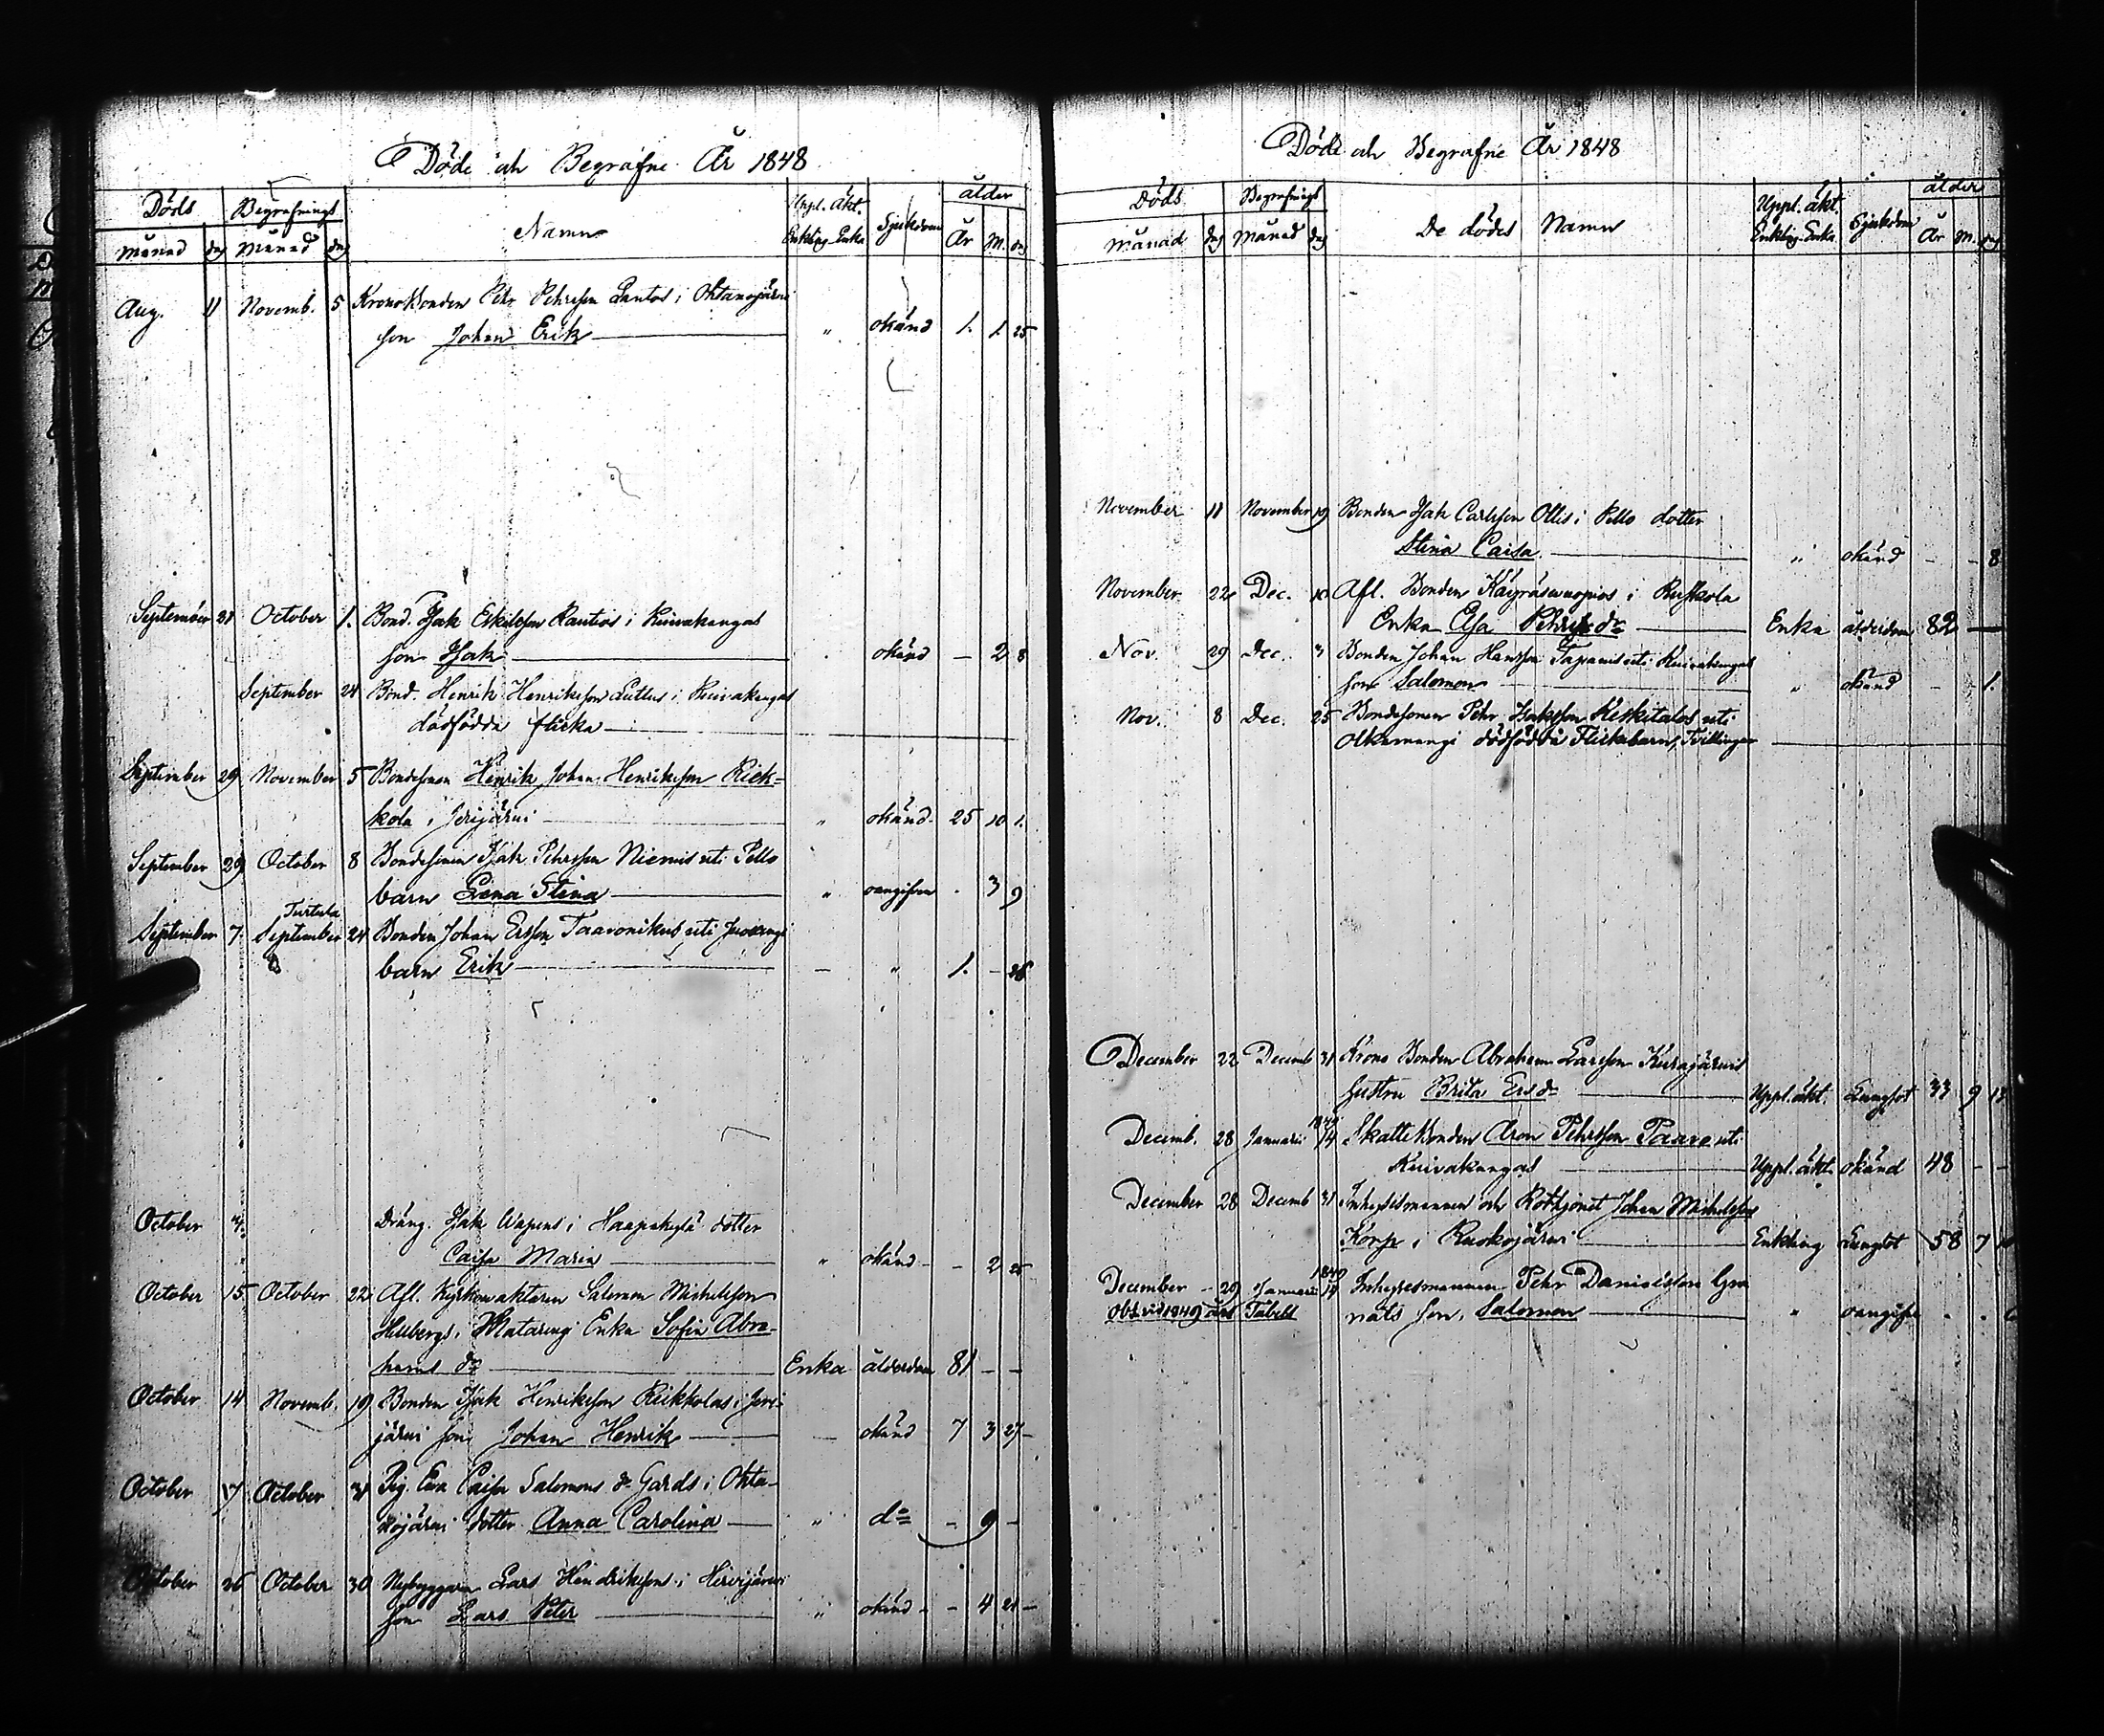 Döde och Begrafne År 1848
Döds Begrafnings Namn Uppl. äkt. Enkling Enka Sjukdom ålder
månad dag månad dag År m. dag
Aug. 11 Novemb. 5 KronoBonden Pehr Pehrsson Lantos i Ohtanajärvi
son Johan Erik " okänd 1. 1. 25
September 21 October 1. Bond. Isak Eskilsson Rantios i Kuivakangas
son Isak okänd - 2 8
September 24 Bond. Henrik Henriksson Luttus i Kuivakangas
dödfödda flicka
September 29 November 5 Bondesonen Henrik Johan Henriksson Riek-
kola i Jerijärvi " okänd 25 10 1.
September 29 October 8 Bondesonen Isak Pehrsson Niemis uti Pello
barn Lena Stina " oangifven - 3 9
Turtula
September 7 September 24 Bonden Johan Ersson Taavonikus uti Juoxengi
barn Erik - " 1. - 26
October Dräng. Isak Wapens i Haapakylä dotter
Caisa Maria " okänd - - 2 25
October 15 October 22 Afl. Kyrkowaktaren Salomon Michelsson
Hillbergs i Matarengi Enka Sofia Abra-
hams dr Enka ålderdom 81 - -
October 14 Novemb. 19 Bonden Isak Henriksson Riekkolas i Jeri-
järvi son Johan Henrik - okänd 7 3 27
October 17 October 31 Pig. Eva Caisa Salomons dr Gards i Ohta-
nojärvi dotter Anna Carolina " do - 9 -
October 26 October 30 Nybyggaren Lars Hendriksons i Hirvijärvi
son Lars Peter " okänd - - 4 21
Döde och Begrafne År 1848
Döds Begrafnings De dödes Namn Uppl. äkt. Enkling. Enka Sjukdom ålder
månad dag månad dag År m. dag
November 11 November 19 Bonden Isak Carlsson Ollis i Pello dotter
Stina Caisa " okänd - - 8
November 22 Dec. 10 Afl. Bonden i Ruskola
Enka Elsa Pehrs dr Enka ålderdom 82 -
Nov. 29 Dec. 3 Bonden Johan Hansson Tapanis uti Kuivakangas
son Salomon " okänd - 1.
Nov. 8 Dec. 25 Bondesonen Pehr Isaksson Keskitalos uti
Olkamangi dödfödda Flickebarn, Tvillingar
December 22 Decemb 31 Krono Bonden Abraham Larsson Kurajärvis
hustru Brita Ersdr Uppl. äkt. Lungsot 33 9 13
Decemb. 28 Januarii 1849 14 SkatteBonden Aron Pehrsson Paavo uti
Kuivakangas Uppl. äkt. okänd 48 - -
December 28 Decemb 31 Inhysesmannen och Rothjonet Johan Michelsson
Korp i Ruokojärvi Enkling Lungsot 58 7
December 29 Januarii 1849 14 Inhysesmannen Pehr Danielsson Gra
Obs. vid 1849 års Tabell nats son, Salomon " oangifve - -